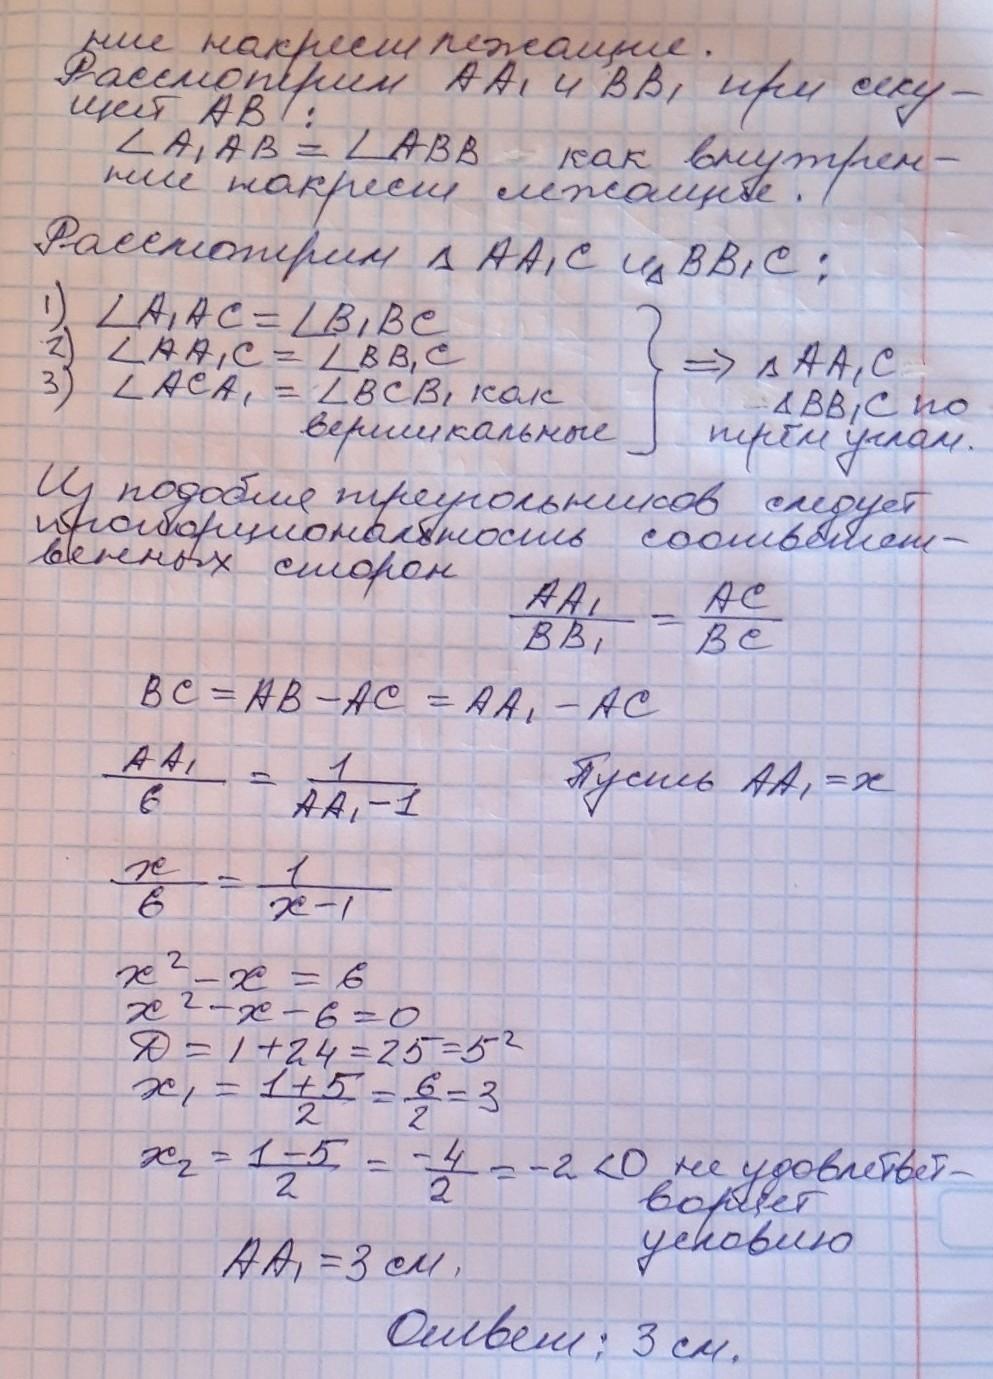 ние накрест лежащие.
Рассмотрим AA₁ и BB₁ при секу-
щей AB :
∠A₁AB = ∠ABB как внутрен-
ние накрест лежащие.
Рассмотрим △ AA₁C и △ BB₁C :
1) ∠A₁AC = ∠B₁BC
2) ∠AA₁C = ∠BB₁C
3) ∠ACA₁ = ∠BCB₁ как
вертикальные
⇒ △ AA₁C
△BB₁C по
трём углам.
Из подобия треугольников следует
пропорциональность соответст-
венных сторон
AA₁/BB₁ = AC/BC
BC = AB - AC = AA₁ - AC
AA₁/6 = 1/(AA₁-1) Пусть AA₁ = x
x/6 = 1/(x-1)
x² - x = 6
x² - x - 6 = 0
D = 1 + 24 = 25 = 5²
x₁ = (1+5)/2 = 6/2 = 3
x₂ = (1-5)/2 = -4/2 = -2 < 0 не удовлетвет-
воряет
условию
AA₁ = 3 см.
Ответ: 3 см.